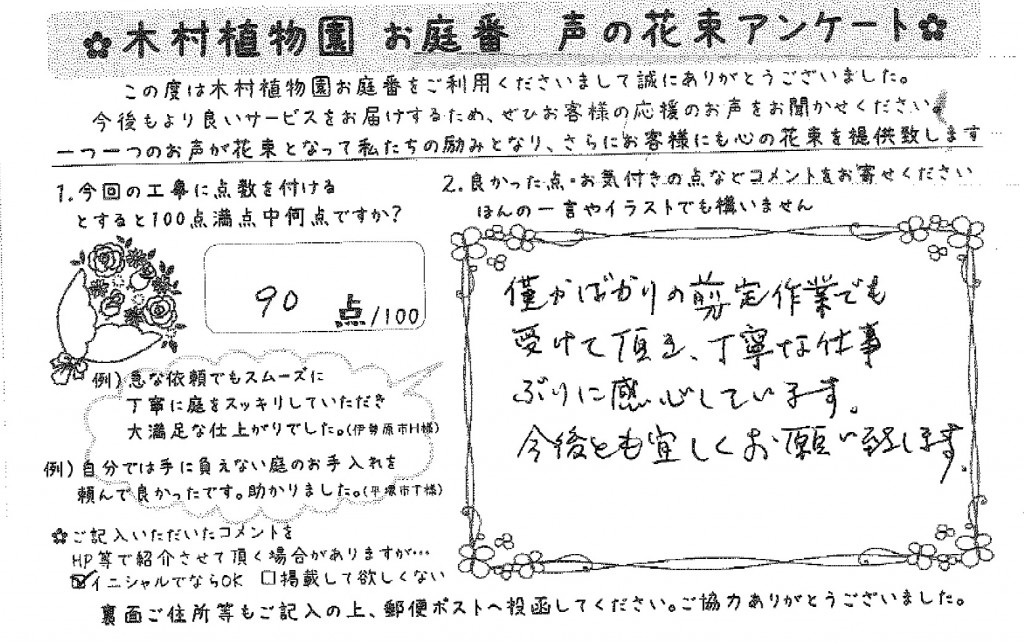 ✿木村植物園 お庭番 声の花束アンケート✿
この度は木村植物園お庭番をご利用くださいまして誠にありがとうございました。
今後もより良いサービスをお届けするため、ぜひお客様の応援のお声をお聞かせください。
一つ一つのお声が花束となって私たちの励みとなり、さらにお客様にも心の花束を提供致します
1.今回の工事に点数を付ける
とすると100点満点中何点ですか?
90 点/100
例)急な依頼でもスムーズに
丁寧に庭をスッキリしていただき
大満足な仕上がりでした。(伊勢原市H様)
例)自分では手に負えない庭のお手入れを
頼んで良かったです。助かりました。(平塚市T様)
✿ご記入いただいたコメントを
HP等で紹介させて頂く場合がありますが…
☑イニシャルでならOK □掲載して欲しくない
2.良かった点・お気付きの点などコメントをお寄せください
ほんの一言やイラストでも構いません
僅かばかりの剪定作業でも
受けて頂き、丁寧な仕事
ぶりに感心しています。
今後とも宜しくお願い致します。
裏面ご住所等もご記入の上、郵便ポストへ投函してください。ご協力ありがとうございました。